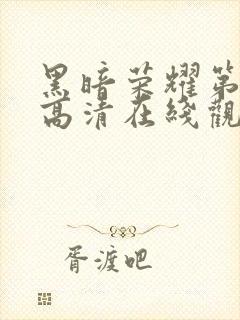 黑暗荣耀第
高清在线觀
胥渡吧